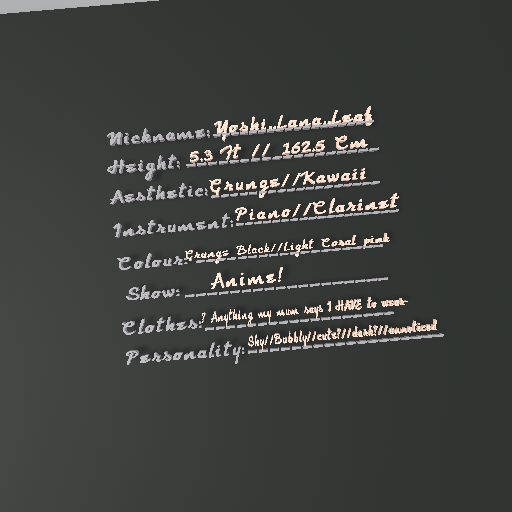 Nickname: Yoshi..Lana..Leaf
Height: 5.3 Ft // 162.5 Cm
Aesthetic: Grunge//Kawaii
Instrument: Piano//Clarinet
Colour: Grunge Black//Light Coral pink
Show: Anime!
Clothes: ? Anything my mum says I HAVE to wear
Personality: Shy//Bubbly//cute?//dark?//unnoticed